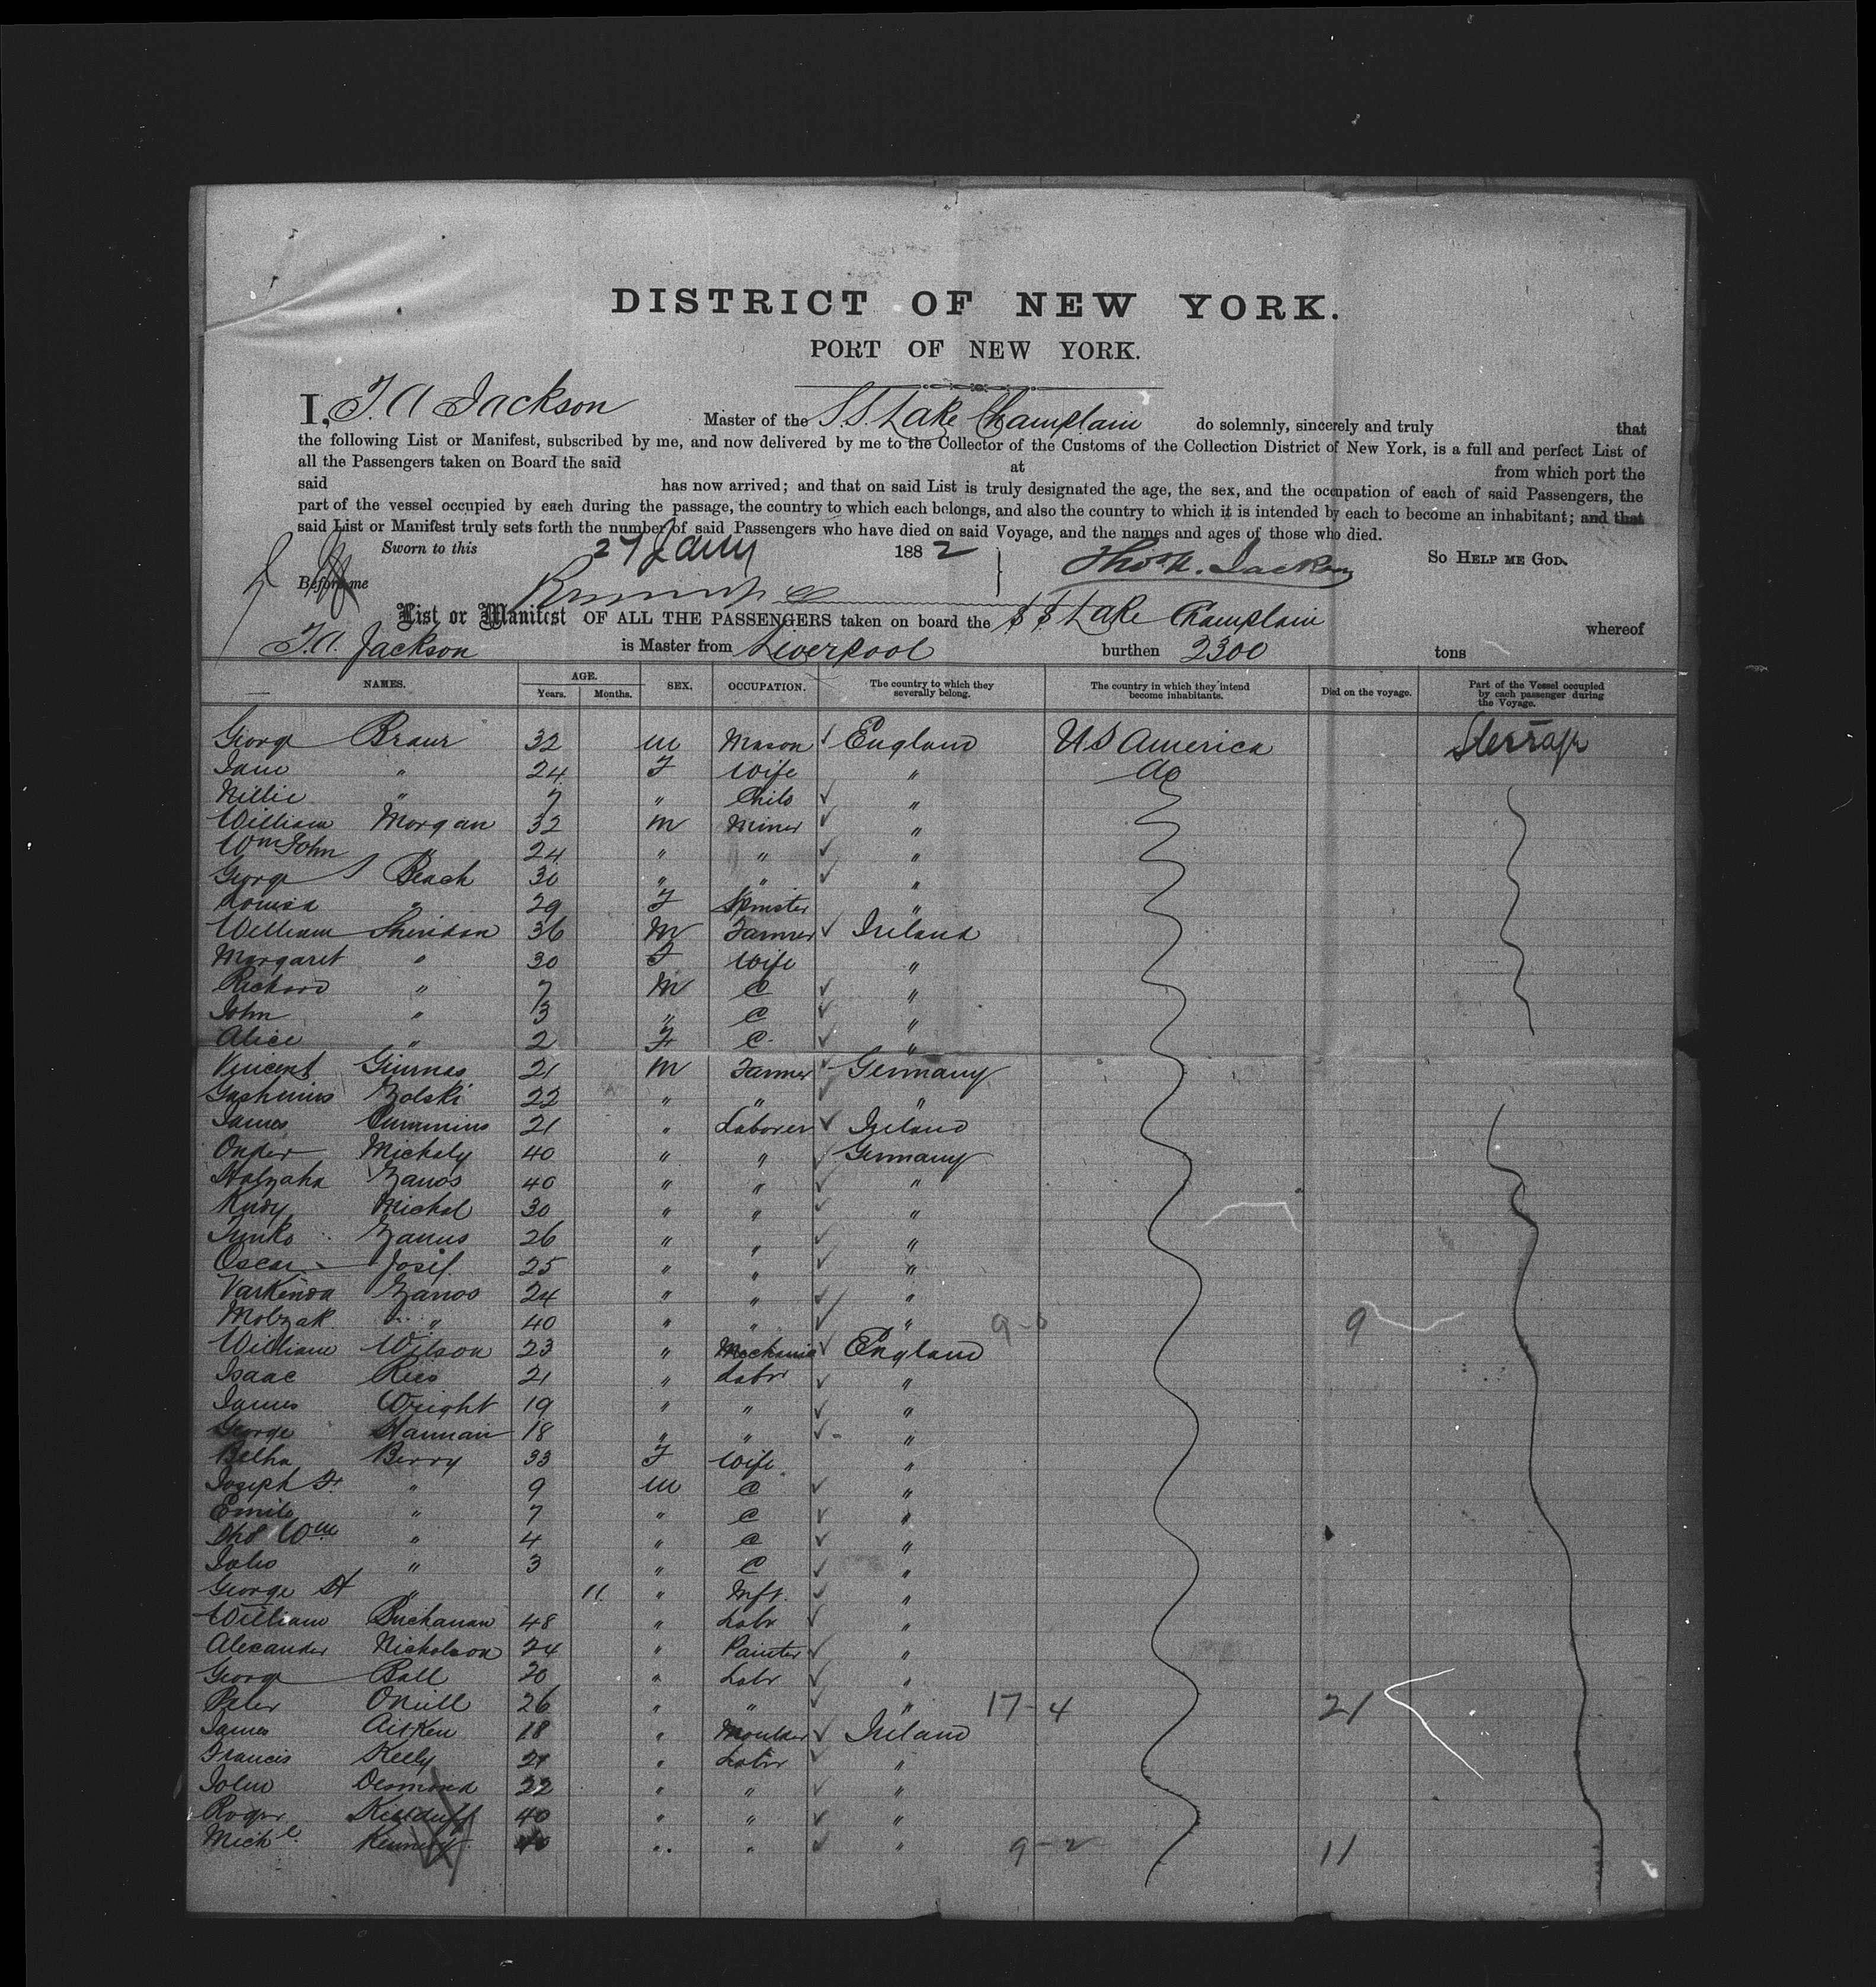 DISTRICT OF NEW YORK.
PORT OF NEW YORK.
I, T. A Jackson Master of the S.S. Lake Champlain do solemnly, sincerely and truly that
the following List or Manifest, subscribed by me, and now delivered by me to the Collector of the Customs of the Collection District of New York, is a full and perfect List of
all the Passengers taken on Board the said at from which port the
said has now arrived; and that on said List is truly designated the age, the sex, and the occupation of each of said Passengers, the
part of the vessel occupied by each during the passage, the country to which each belongs, and also the country to which it is intended by each to become an inhabitant; and that
said List or Manifest truly sets forth the number of said Passengers who have died on said Voyage, and the names and ages of those who died.
Sworn to this 27 Jany 1882 Thos A. Jackson So HELP ME GOD.
Before me
List or Manifest OF ALL THE PASSENGERS taken on board the SS Lake Champlain whereof
T.A. Jackson is Master from Liverpool burthen 2300 tons
NAMES. AGE. Years. Months. SEX. OCCUPATION. The country to which they severally belong. The country in which they intend become inhabitants. Died on the voyage. Part of the Vessel occupied by each passenger during the Voyage.
George 32 m Mason England US America
" 24 F Wife " do
Nellie " 7 " Child "
William Morgan 32 m Miner "
Wm John " 24 " " "
George Beach 30 " " "
Louisa " 29 F Spinster "
William Sheridan 36 M Farmer Ireland
Margaret " 30 F Wife "
Richard " 7 M C "
John " 3 " C "
Alice " 2 F C "
Vincent 21 M Farmer Germany
Zolski 22 " " "
James Cummins 21 " Laborer Ireland
Michaly 40 " " Germany
40 " " "
Michal 30 " " "
26 " " "
Oscar Josif 25 " " "
24 " " "
" 40 " " " 9-0 9
William Wilson 23 " Mechanic England
Isaac Rees 21 " Labr "
James Wright 19 " " "
George Hannan 18 " " "
Berry 33 F Wife "
Joseph " 9 m C "
" 7 " C "
Wm " 4 " C "
" 3 " C "
George H " 11 " Inft. "
William Buchanan 48 " Labr "
Alexander Nicholson 24 " Painter "
George Ball 20 " Labr "
Peter ONeill 26 " " " 17-4 21
James Aitken 18 " Moulder Ireland
Francis Kelly 21 " Labr "
John Desmond 22 " " "
Roger Kilduff 40 " " "
Michl 40 " " " 9-2 11